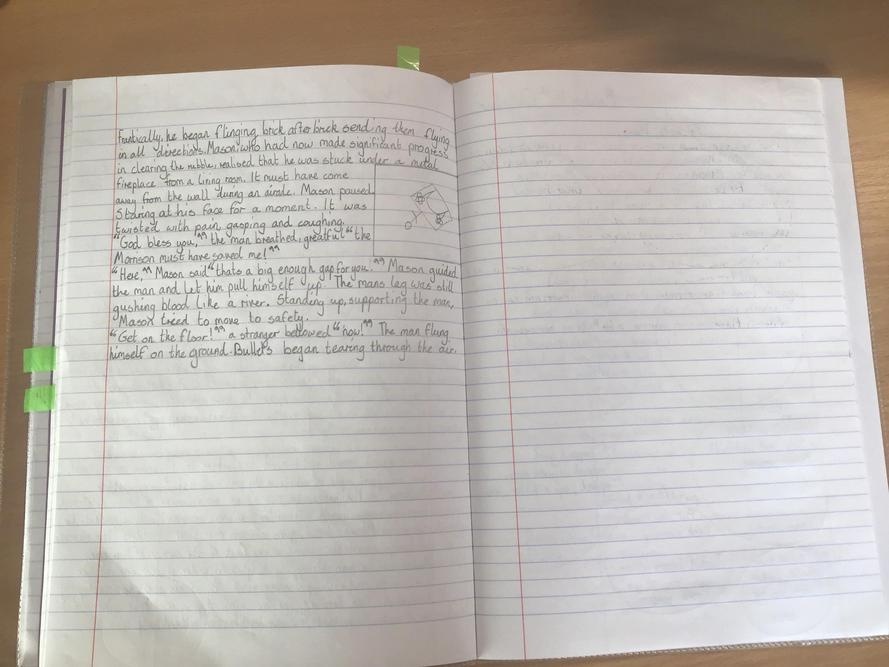 Frantically, he began flinging brick after brick sending them flying
in all directions. Mason, who had now made significant progress
in clearing the rubble, realised that he was stuck under a metal
fireplace from a living room. It must have come
away from the wall during an airade. Mason paused
Staring at his face for a moment. It was
twisted with pain, gasping and coughing.
"God bless you," the man breathed, greatful "the
Morrison must have saved me!"
"Here," Mason said "thats a big enough gap for you!" Mason guided
the man and let him pull himself up. The mans leg was still
gushing blood like a river. Standing up, supporting the man,
Mason tried to move to safety.
"Get on the floor!" a stranger bellowed "now!" The man flung
himself on the ground. Bullets began tearing through the air.